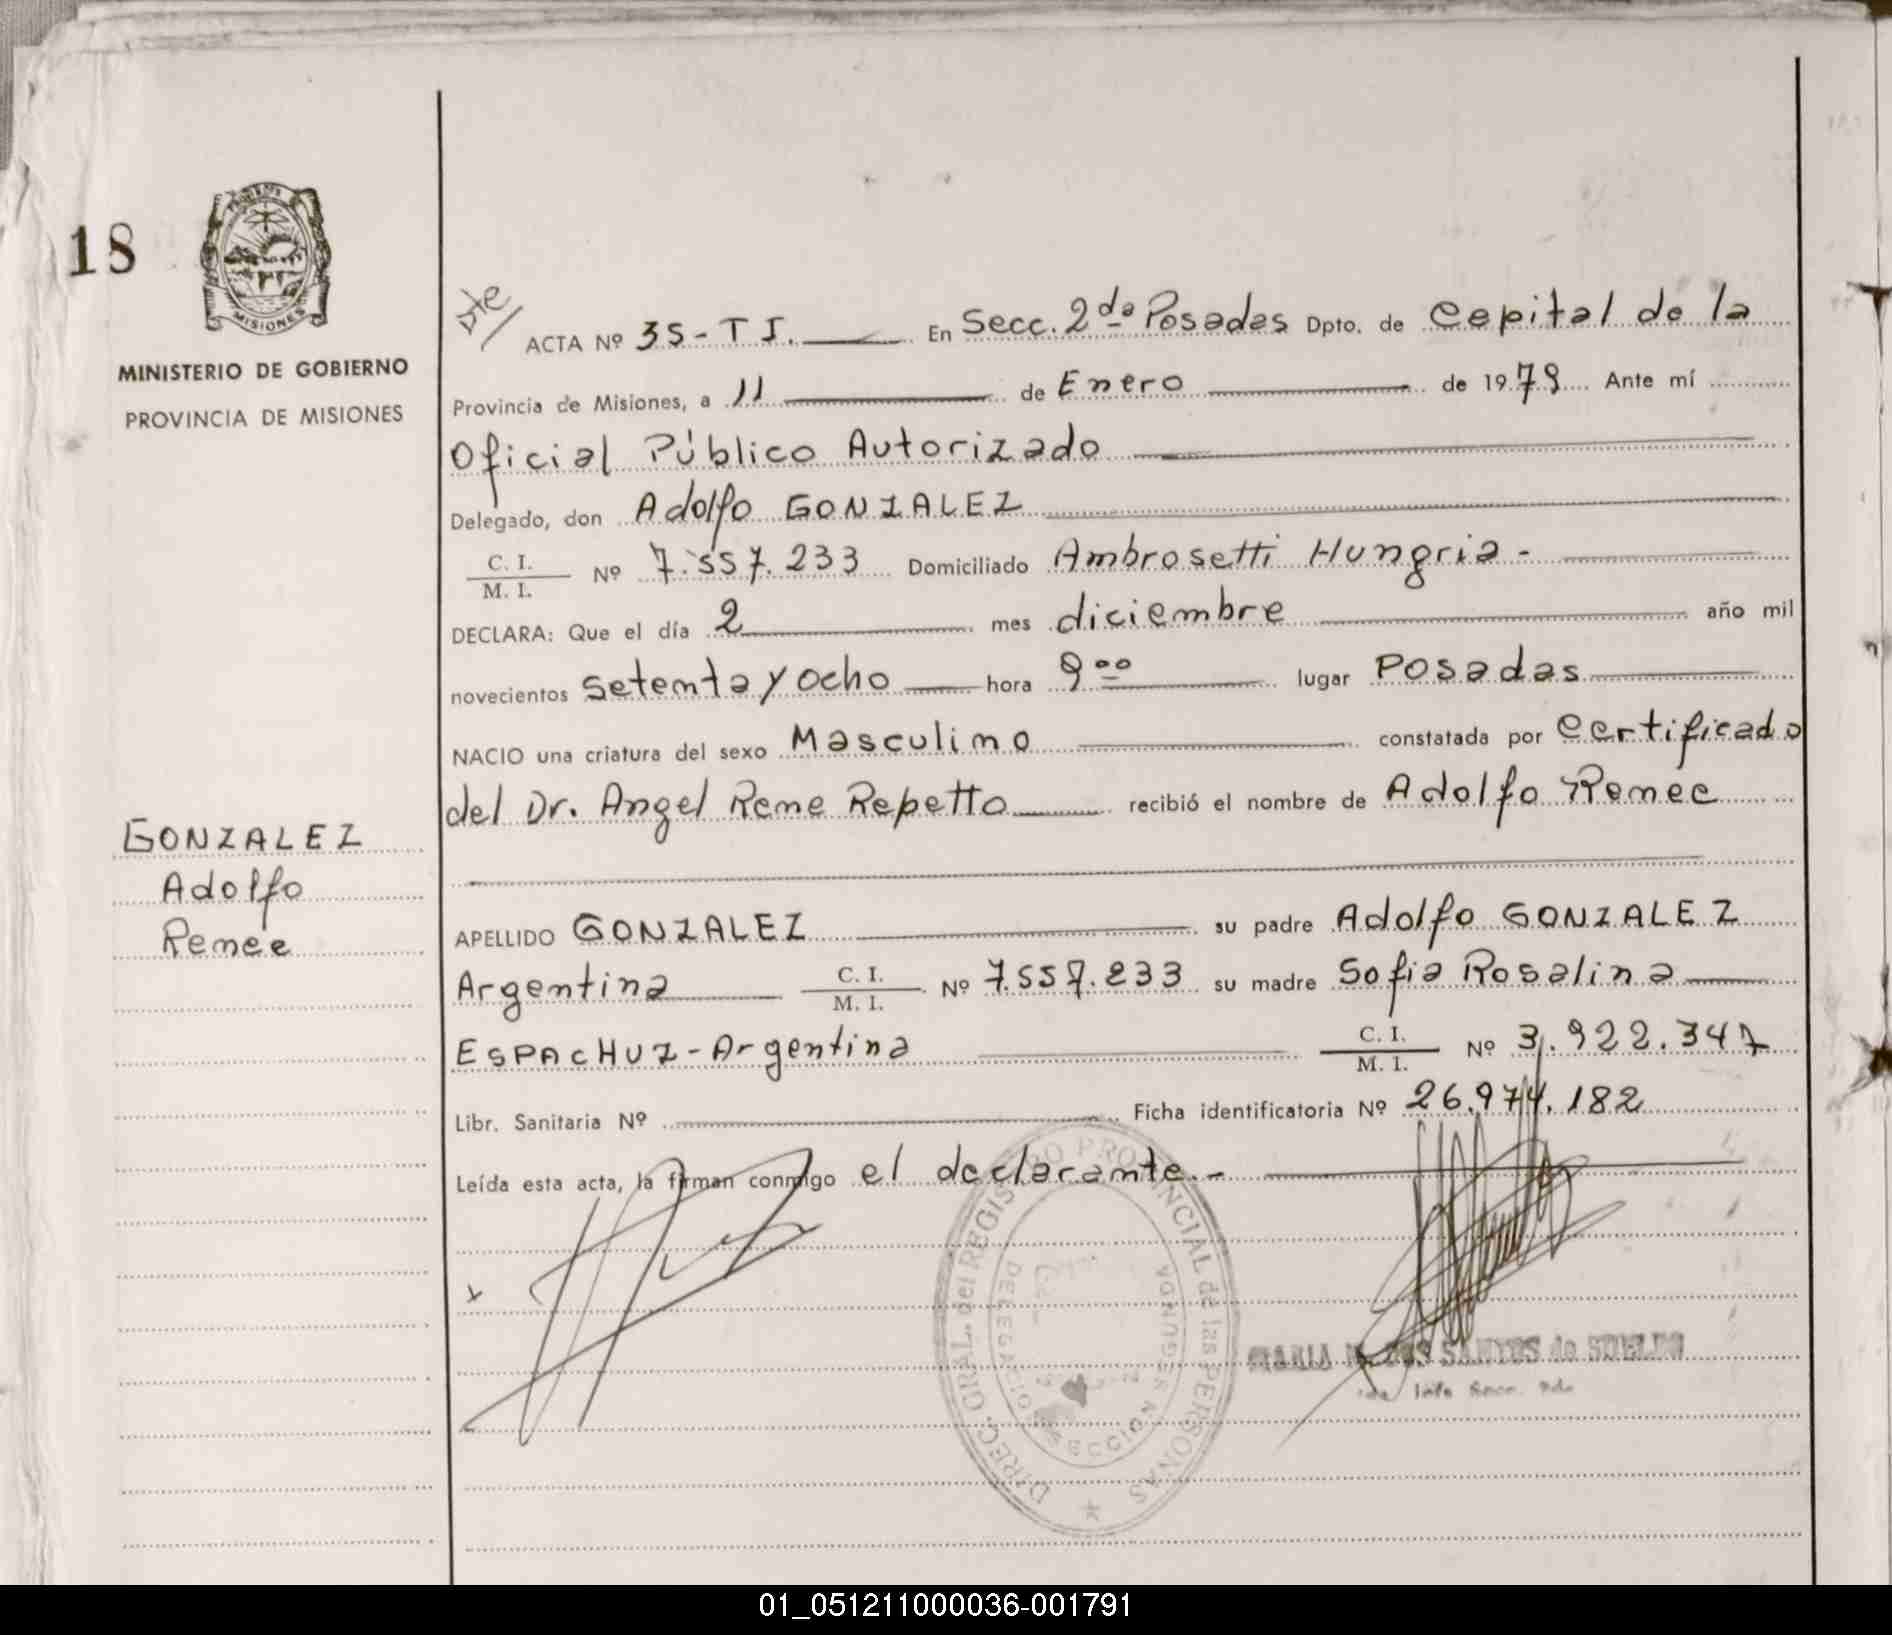 18
PROVINCIA DE
MISIONES
MINISTERIO DE GOBIERNO
PROVINCIA DE MISIONES
Dte/
ACTA Nº 35-TI. En Secc. 2da Posadas Dpto. de Capital de la
Provincia de Misiones, a 11 de Enero de 1979 Ante mí
Oficial Público Autorizado
Delegado, don Adolfo GONZALEZ
C. I.
M. I. Nº 7.557.233 Domiciliado Ambrosetti Hungria -
DECLARA: Que el día 2 mes diciembre año mil
novecientos setenta y ocho hora 9 00 lugar Posadas
NACIO una criatura del sexo Masculino constatada por Certificado
del Dr. Angel Rene Repetto recibió el nombre de Adolfo Renee
GONZALEZ
Adolfo
Renee
APELLIDO GONZALEZ su padre Adolfo GONZALEZ
Argentina C. I. M. I. Nº 7.557.233 su madre Sofia Rosalina
ESPACHUZ - Argentina C. I. M. I. Nº 3.922.347
Libr. Sanitaria Nº Ficha identificatoria Nº 26.974.182
Leída esta acta, la firman conmigo el declarante.-
x
DIREC. GRAL. del REGISTRO PROVINCIAL de las PERSONAS
DELEGACION SECCION SEGUNDA
MARIA DOS SANTOS de
01_051211000036-001791